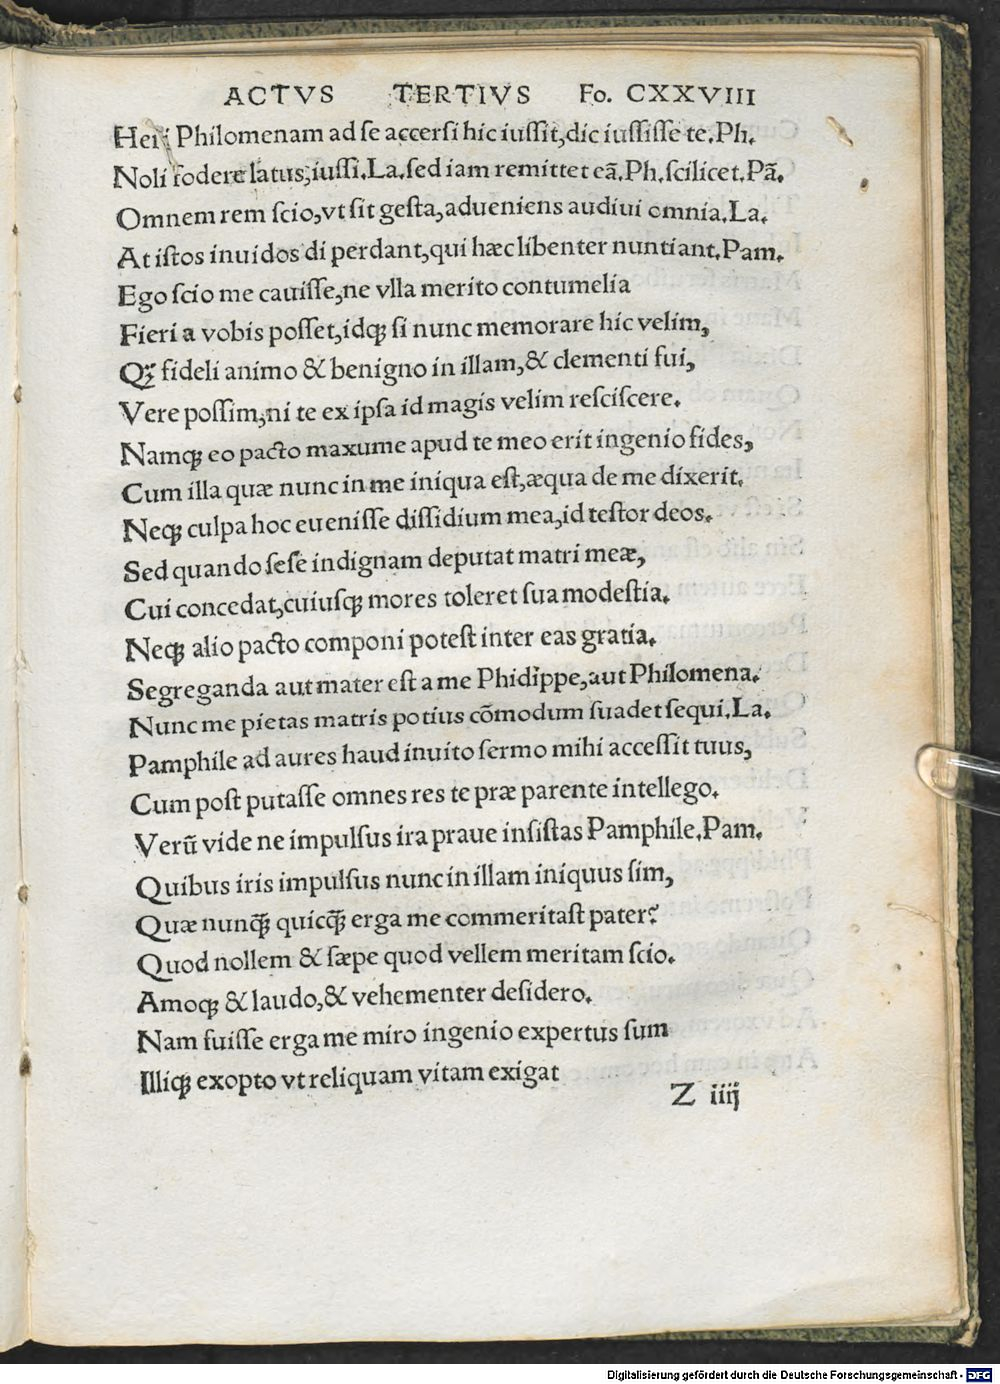 ACTVS TERTIVS Fo. CXXVIII
Heri Philomenam ad se accersi hic iuſſit,dic iuſſiſſe te.Ph.
Noli fodere latus,iuſſi.La.ſed iam remittet eã.Ph.ſcilicet.Pã.
Omnem rem ſcio,vt ſit geſta,adueniens audiui omnia.La.
At iſtos inuidos di perdant,qui hæc libenter nuntiant.Pam.
Ego ſcio me cauiſſe,ne vlla merito contumelia
Fieri a vobis poſſet,idqꝫ ſi nunc memorare hic velim,
Qꝫ fideli animo & benigno in illam,& clementi fui,
Vere poſſim,ni te ex ipſa id magis velim reſciſcere.
Namqꝫ eo pacto maxume apud te meo erit ingenio fides,
Cum illa quæ nunc in me iniqua eſt,æqua de me dixerit.
Neqꝫ culpa hoc eueniſſe diſſidium mea,id teſtor deos.
Sed quando ſeſe indignam deputat matri meæ,
Cui concedat,cuiuſqꝫ mores toleret ſua modeſtia.
Neqꝫ alio pacto componi poteſt inter eas gratia.
Segreganda aut mater eſt a me Phidippe,aut Philomena.
Nunc me pietas matris potius cõmodum ſuadet ſequi.La.
Pamphile ad aures haud inuito ſermo mihi acceſſit tuus,
Cum poſt putaſſe omnes res te præ parente intellego.
Verũ vide ne impulſus ira praue inſiſtas Pamphile.Pam.
Quibus iris impulſus nunc in illam iniquus ſim,
Quæ nunqꝫ̃ quicqꝫ̃ erga me commeritaſt pater?
Quod nollem & ſæpe quod vellem meritam ſcio.
Amoqꝫ & laudo,& vehementer deſidero.
Nam fuiſſe erga me miro ingenio expertus ſum
Illiqꝫ exopto vt reliquam vitam exigat
Z iiij
Digitalisierung gefördert durch die Deutsche Forschungsgemeinschaft - DFG